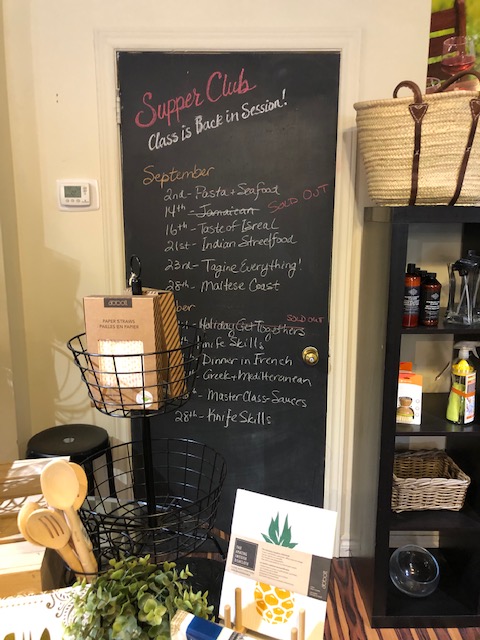 Supper Club
Class is Back in Session!
September
2nd - Pasta + Seafood
14th - Jamaican SOLD OUT
16th - Taste of Isreal
21st - Indian Streetfood
23rd - Tagine Everything!
28th - Maltese Coast
ber
Holiday Get Togethers SOLD OUT
Knife Skills
Dinner in French
Greek + Mediterranean
- Master Class - Sauces
28th - Knife Skills
abode
PAPER STRAWS
PAILLES EN PAPIER